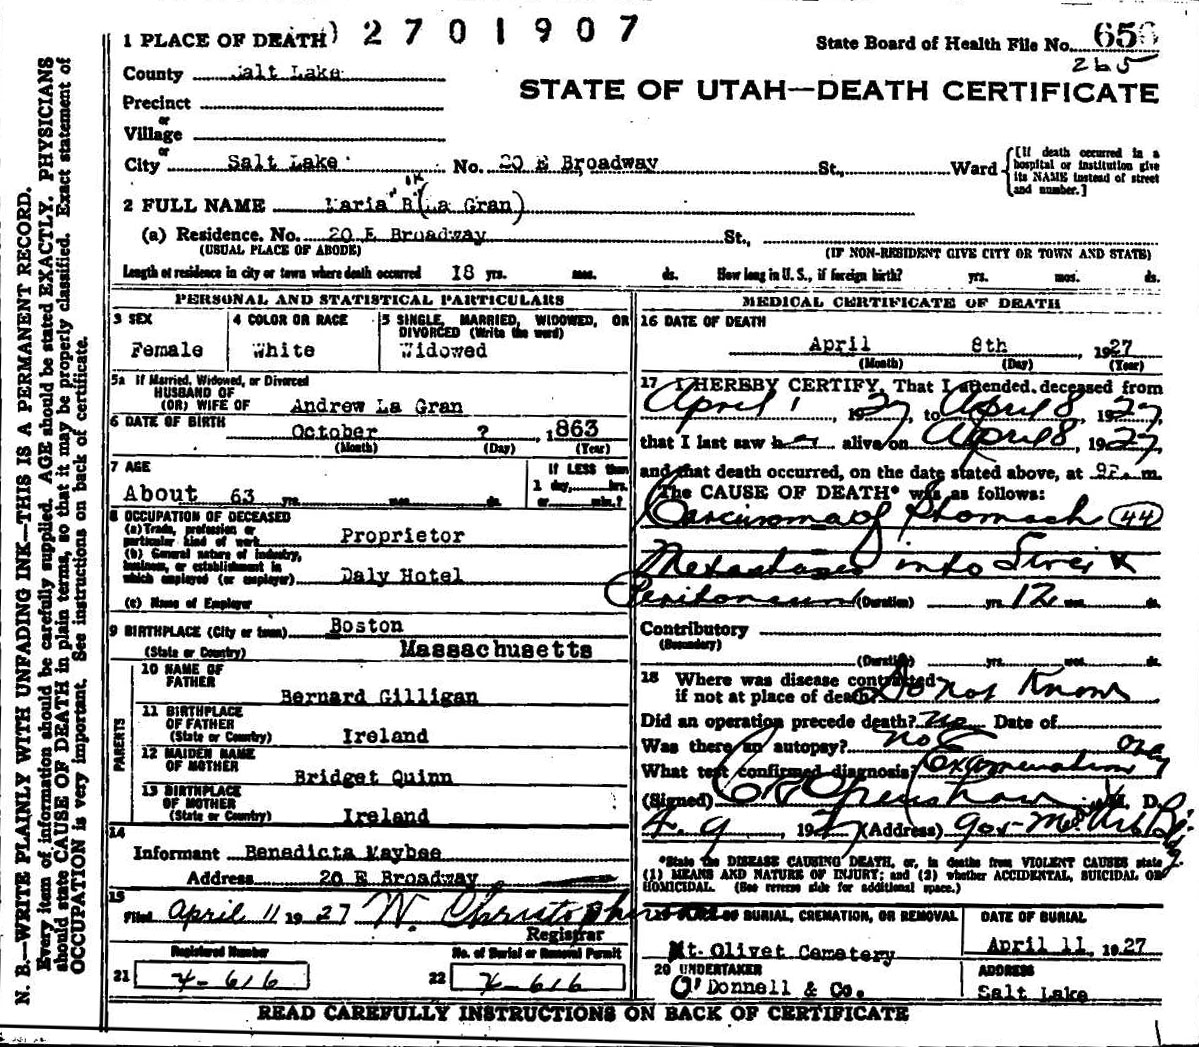 1 PLACE OF DEATH) 2701907
State Board of Health File No. 656
265
County Salt Lake
STATE OF UTAH—DEATH CERTIFICATE
Precinct
or
Village
or
City Salt Lake No. 20 E Broadway St., Ward {[If death occurred in a hospital or institution give its NAME instead of street and number.]
OK
2 FULL NAME Maria B (La Gran)
(a) Residence. No. 20 E Broadway St.,
(USUAL PLACE OF ABODE) (IF NON-RESIDENT GIVE CITY OR TOWN AND STATE)
Length of residence in city or town where death occurred 18 yrs. mos. ds. How long in U. S., if foreign birth? yrs. mos. ds.
PERSONAL AND STATISTICAL PARTICULARS
3 SEX
Female
4 COLOR OR RACE
White
5 SINGLE, MARRIED, WIDOWED, OR
DIVORCED (Write the word)
Widowed
5a If Married, Widowed, or Divorced
HUSBAND OF
(OR) WIFE OF Andrew La Gran
6 DATE OF BIRTH October ? , 1863
(Month) (Day) (Year)
7 AGE
About 63 yrs. mos. ds.
If LESS than
1 day, hrs.
or min.?
8 OCCUPATION OF DECEASED
(a) Trade, profession or
particular kind of work Proprietor
(b) General nature of industry,
business, or establishment in
which employed (or employer) Daly Hotel
(c) Name of Employer
9 BIRTHPLACE (City or town) Boston
(State or Country) Massachusetts
PARENTS
10 NAME OF
FATHER Bernard Gilligan
11 BIRTHPLACE
OF FATHER
(State or Country) Ireland
12 MAIDEN NAME
OF MOTHER Bridget Quinn
13 BIRTHPLACE
OF MOTHER
(State or Country) Ireland
14
Informant Benedicta Maybee
Address 20 E Broadway
15
Filed April 11 1927 W. Christopher
Registrar
Registered Number
21 4-616
No. of Burial or Removal Permit
22 4-616
MEDICAL CERTIFICATE OF DEATH
16 DATE OF DEATH
April 8th , 1927
(Month) (Day) (Year)
17 I HEREBY CERTIFY, That I attended deceased from
April 1 1927 to April 8, 1927
that I last saw her alive on April 8, 1927
and that death occurred, on the date stated above, at m.
The CAUSE OF DEATH* was as follows:
Carcinoma of Stomach (44)
Metastases into Liver &
Peritoneum (Duration) yrs. 12 mos. ds.
Contributory
(Secondary)
(Duration) yrs. mos. ds.
18 Where was disease contracted
if not at place of death? Do not Know
Did an operation precede death? No Date of
Was there an autopsy? no
What test confirmed diagnosis? Examination only
(Signed) M. D.
4-9, 1927 (Address)
*State the DISEASE CAUSING DEATH, or, in deaths from VIOLENT CAUSES state
(1) MEANS AND NATURE OF INJURY; and (2) whether ACCIDENTAL, SUICIDAL OR
HOMICIDAL. (See reverse side for additional space.)
19 PLACE OF BURIAL, CREMATION, OR REMOVAL
Mt. Olivet Cemetery
DATE OF BURIAL
April 11, 1927
20 UNDERTAKER
O'Donnell & Co.
ADDRESS
Salt Lake
READ CAREFULLY INSTRUCTIONS ON BACK OF CERTIFICATE
N. B.—WRITE PLAINLY WITH UNFADING INK—THIS IS A PERMANENT RECORD.
Every item of information should be carefully supplied. AGE should be stated EXACTLY. PHYSICIANS
should state CAUSE OF DEATH in plain terms, so that it may be properly classified. Exact statement of
OCCUPATION is very important. See instructions on back of certificate.